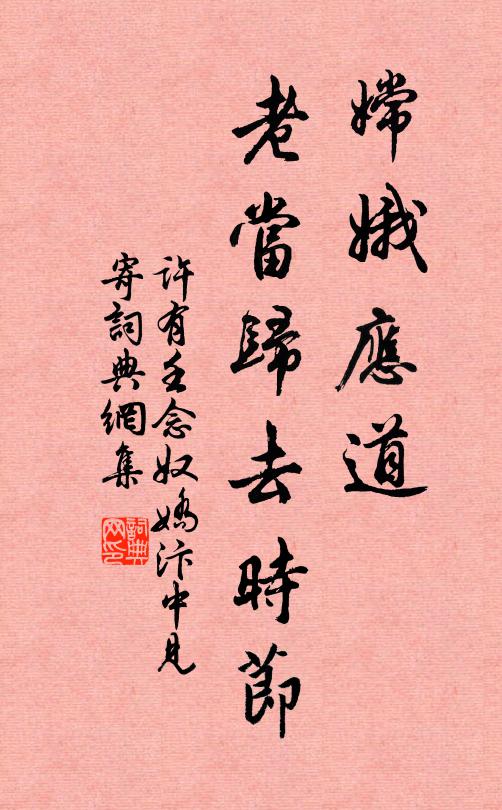 嫦娥應道
老當歸去時節
許有壬念奴嬌汴中見
寄詞典網集
詞典網印